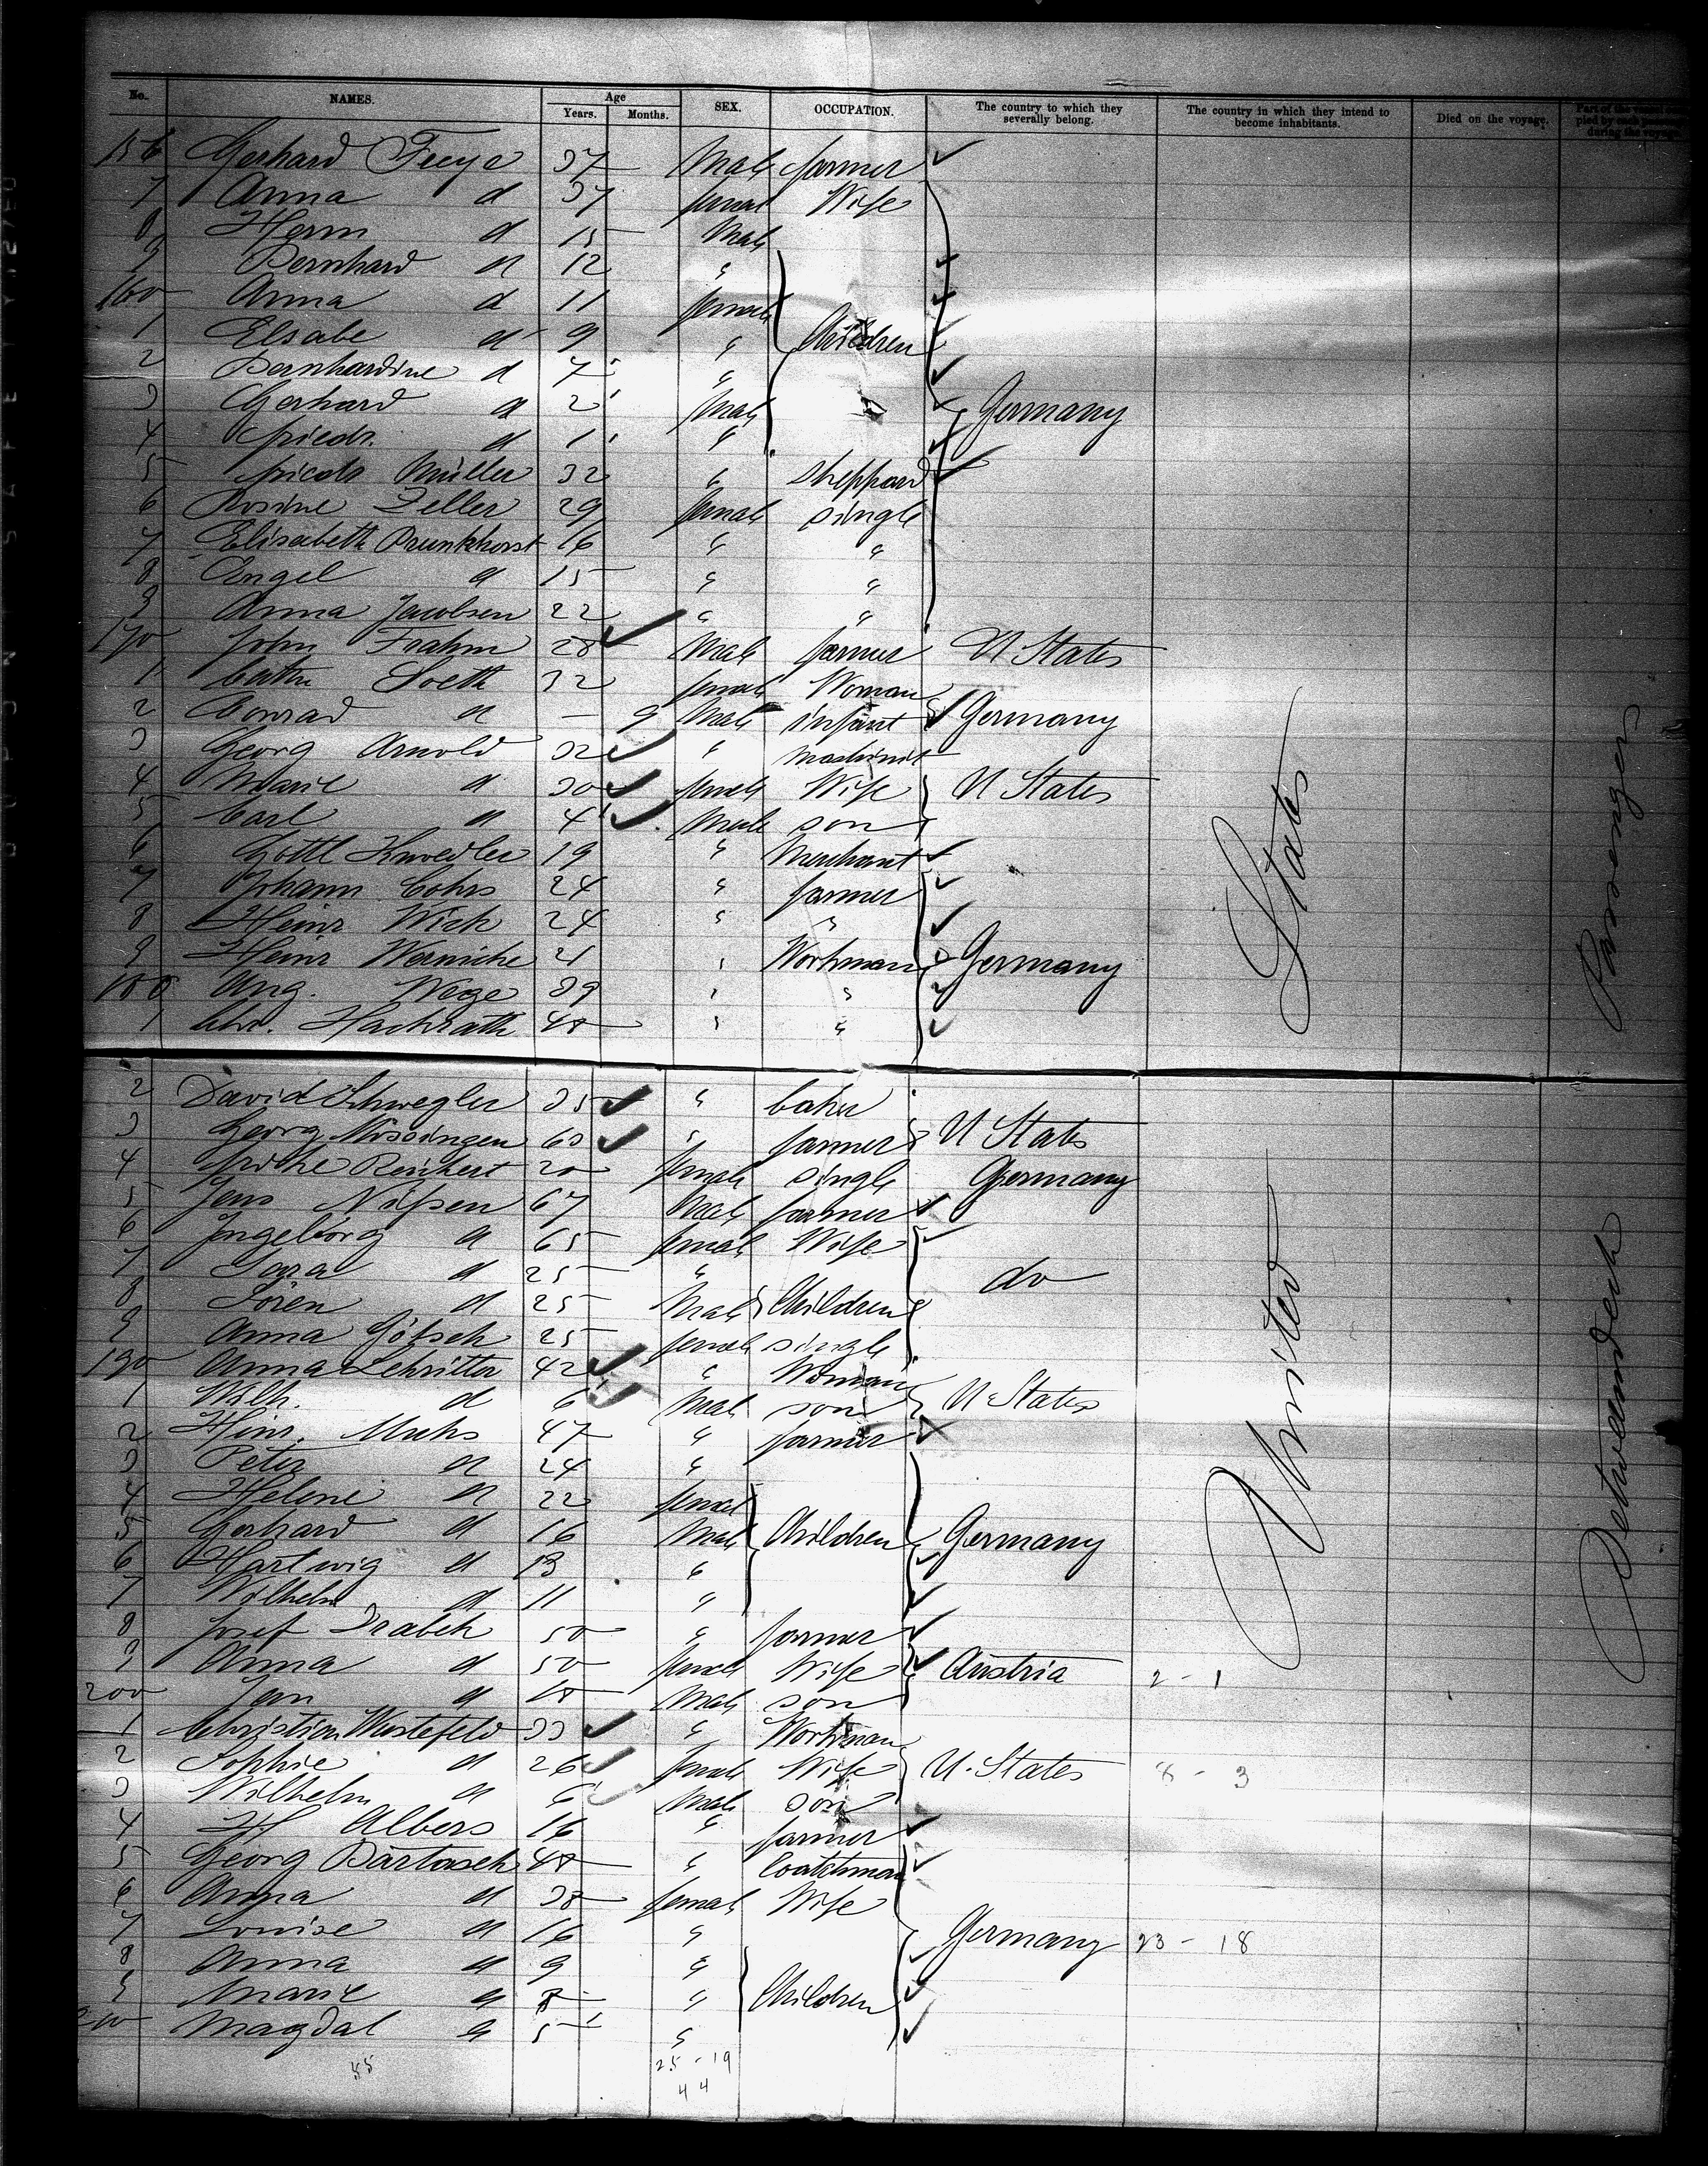 No. NAMES. Age Years. Months. SEX. OCCUPATION. The country to which they severally belong. The country in which they intend to become inhabitants. Died on the voyage. Part of the vessel occupied by each passenger during the voyage.
156 Gerhard Freye 37 Male farmer
7 Anna d 37 femal Wife
8 Herm d 15 Male
9 Bernhard d 12 "
160 Anna d 11 female
1 Elsabe d 9 " Children
2 Bernhardine d 7 "
3 Gerhard d 2 Male Germany
4 Friedr. d 1 "
5 Friedr Müller 32 " Sheppard
6 Rosine Zeller 29 female single
7 Elisabeth Brunkhorst 16 " "
8 Engel d 15 " "
9 Anna Jacobsen 22 " "
170 John Frahm 28 Male farmer U States
1 Cathr Soeth 32 female Woman
2 Conrad d - 9 Male infant Germany
3 Georg Arnold 32 " Mashinist
4 Marie d 30 female Wife U States
5 Carl d 4 Male son
6 Gottl Knoedler 19 " Merchant
7 Johann Cohrs 24 " farmer
8 Heinr Wick 24 " "
9 Heinr Wernicke 21 " Workman Germany
180 Aug. Wege 39 " "
1 Chr. Hachrath 48 " "
2 David Schwegler 35 " baker
3 Georg 60 " farmer U States
4 Reichert 20 female single Germany
5 Jens Nissen 67 Male farmer
6 Ingeborg d 65 femal Wife
7 Sara d 25 " do
8 Sören d 25 Male Children
9 Anna Götsch 25 female single
190 Anna Lehritter 42 " Woman
1 Wilh. d 6 Male son U States
2 Hinr. Muhs 47 " farmer
3 Peter d 24 "
4 Helene d 22 femal
5 Gerhard d 16 Male Children Germany
6 Hartwig d 13 "
7 Wilhelm d 11 "
8 Josef Drabek 50 " farmer
9 Anna d 50 female Wife Austria 2 - 1
200 Jan d 18 Male son
1 Christian Westefeld 33 " Workman
2 Sophie d 26 female Wife U. States 8 - 3
3 Wilhelm d 6 Male son
4 H Albers 16 " farmer
5 Georg Bartasch 48 " Coatchman
6 Anna d 38 femal Wife
7 Louise d 16 " Germany 23 - 18
8 Anna d 9 "
9 Marie d 8 " Children
210 Magdal d 5 "
55 25 - 19
44
United States
Betweendeck Passengers